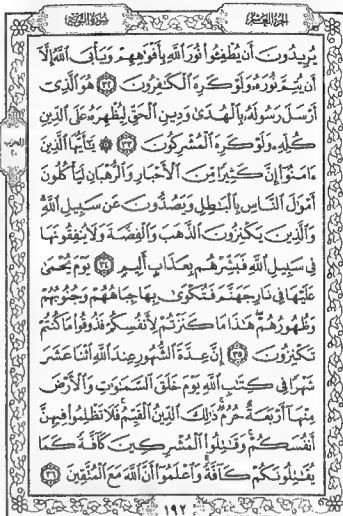 الجزء العاشر
سورة التوبة
يُرِيدُونَ أَن يُطْفِـُٔوا۟ نُورَ ٱللَّهِ بِأَفْوَٰهِهِمْ وَيَأْبَى ٱللَّهُ إِلَّآ
أَن يُتِمَّ نُورَهُۥ وَلَوْ كَرِهَ ٱلْكَـٰفِرُونَ ٣٢ هُوَ ٱلَّذِىٓ
أَرْسَلَ رَسُولَهُۥ بِٱلْهُدَىٰ وَدِينِ ٱلْحَقِّ لِيُظْهِرَهُۥ عَلَى ٱلدِّينِ
كُلِّهِۦ وَلَوْ كَرِهَ ٱلْمُشْرِكُونَ ٣٣ ۞ يَـٰٓأَيُّهَا ٱلَّذِينَ
ءَامَنُوٓا۟ إِنَّ كَثِيرًا مِّنَ ٱلْأَحْبَارِ وَٱلرُّهْبَانِ لَيَأْكُلُونَ
أَمْوَٰلَ ٱلنَّاسِ بِٱلْبَـٰطِلِ وَيَصُدُّونَ عَن سَبِيلِ ٱللَّهِ
وَٱلَّذِينَ يَكْنِزُونَ ٱلذَّهَبَ وَٱلْفِضَّةَ وَلَا يُنفِقُونَهَا
فِى سَبِيلِ ٱللَّهِ فَبَشِّرْهُم بِعَذَابٍ أَلِيمٍ ٣٤ يَوْمَ يُحْمَىٰ
عَلَيْهَا فِى نَارِ جَهَنَّمَ فَتُكْوَىٰ بِهَا جِبَاهُهُمْ وَجُنُوبُهُمْ
وَظُهُورُهُمْ ۖ هَـٰذَا مَا كَنَزْتُمْ لِأَنفُسِكُمْ فَذُوقُوا۟ مَا كُنتُمْ
تَكْنِزُونَ ٣٥ إِنَّ عِدَّةَ ٱلشُّهُورِ عِندَ ٱللَّهِ ٱثْنَا عَشَرَ
شَهْرًا فِى كِتَـٰبِ ٱللَّهِ يَوْمَ خَلَقَ ٱلسَّمَـٰوَٰتِ وَٱلْأَرْضَ
مِنْهَآ أَرْبَعَةٌ حُرُمٌ ۚ ذَٰلِكَ ٱلدِّينُ ٱلْقَيِّمُ ۚ فَلَا تَظْلِمُوا۟ فِيهِنَّ
أَنفُسَكُمْ ۚ وَقَـٰتِلُوا۟ ٱلْمُشْرِكِينَ كَآفَّةً كَمَا
يُقَـٰتِلُونَكُمْ كَآفَّةً ۚ وَٱعْلَمُوٓا۟ أَنَّ ٱللَّهَ مَعَ ٱلْمُتَّقِينَ ٣٦
١٩٢